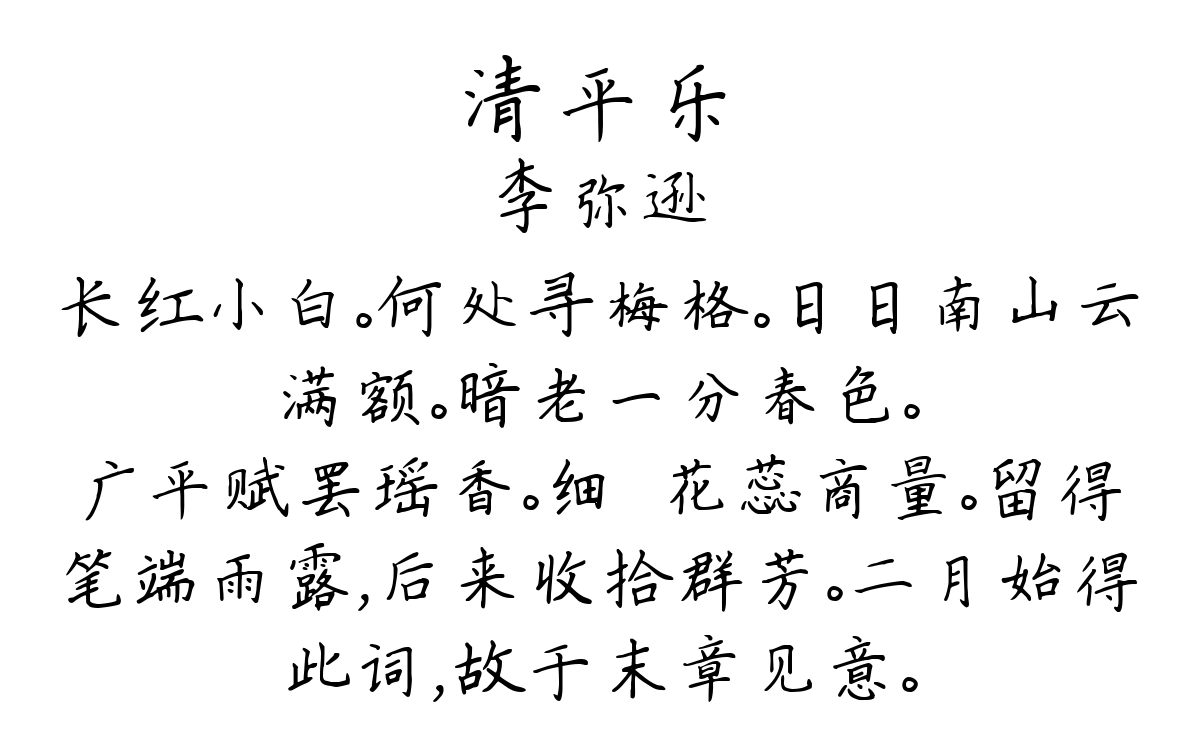 清平乐
李弥逊
长红小白。何处寻梅格。日日南山云
满额。暗老一分春色。
广平赋罢瑶香。细 花蕊商量。留得
笔端雨露,后来收拾群芳。二月始得
此词,故于末章见意。